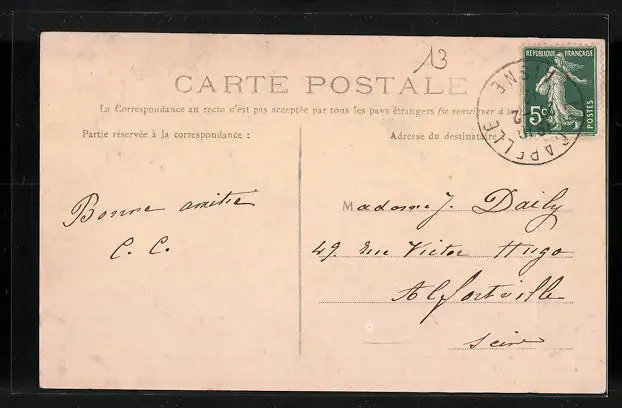 13
CARTE POSTALE
La Correspondance au recto n'est pas acceptée par tous les pays étrangers (se renseigner à
Partie réservée à la correspondance :
Adresse du destinataire
RÉPUBLIQUE FRANÇAISE
5c
POSTES
CAPELLE
AISNE
Bonne amitié
C. C.
Madame J. Daily
49. Rue Victor Hugo
Alfortville
Seine